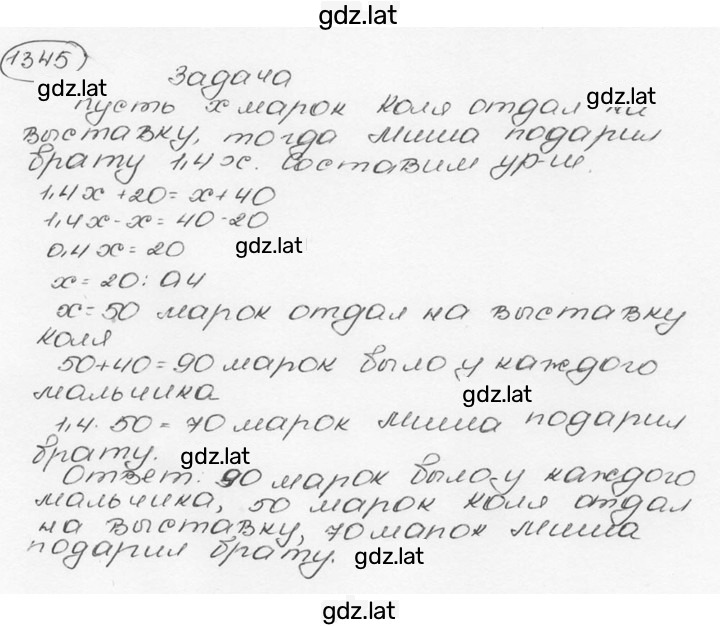 gdz.lat
1345
gdz.lat
Задача
gdz.lat
пусть х марок Коля отдал на
выставку, тогда Миша подарил
брату 1,4х. Составим ур-ие.
1,4х + 20 = х + 40
1,4х - х = 40 - 20
0,4х = 20
gdz.lat
х = 20 : 0,4
х = 50 марок отдал на выставку
Коля
50 + 40 = 90 марок было у каждого
мальчика
gdz.lat
1,4 · 50 = 70 марок Миша подарил
брату.
gdz.lat
Ответ: 90 марок было у каждого
мальчика, 50 марок Коля отдал
на выставку, 70 марок Миша
подарил брату.
gdz.lat
gdz.lat